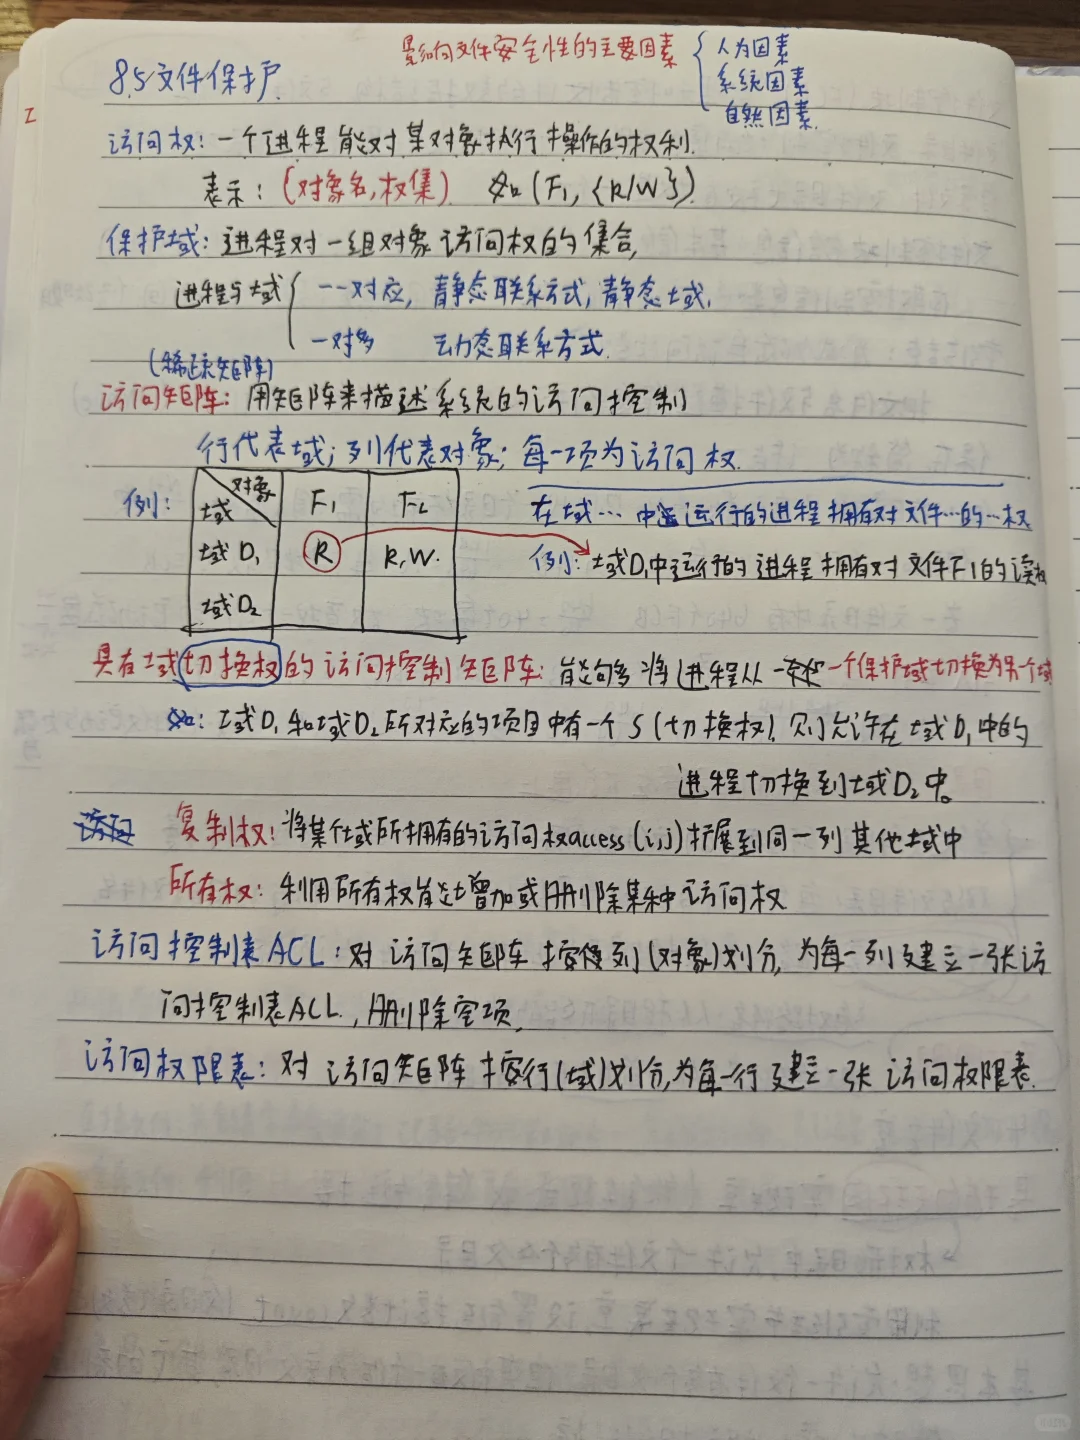 影响文件安全性的主要因素 { 人为因素
系统因素
自然因素
8.5 文件保护
访问权: 一个进程能对某对象执行操作的权利.
表示: (对象名,权集) 如 (F1, {R/W}).
保护域: 进程对一组对象访问权的集合,
进程与域 { 一一对应, 静态联系方式, 静态域,
一对多 动态联系方式.
(稀疏矩阵)
访问矩阵: 用矩阵来描述系统的访问控制
行代表域; 列代表对象; 每一项为访问权.
例: 对象 域 F1 F2
域D1 R R,W.
域D2
在域…中运行的进程拥有对文件…的…权
例: 域D1中运行的进程拥有对文件F1的读权
具有域切换权的访问控制矩阵: 能够将进程从一个保护域切换为另一个域
如: 域D1和域D2所对应的项目中有一个S(切换权), 则允许在域D1中的
进程切换到域D2中。
访问 复制权: 将某个域所拥有的访问权access(i,j)扩展到同一列其他域中
所有权: 利用所有权能增加或删除某种访问权
访问控制表ACL: 对访问矩阵按列(对象)划分, 为每一列建立一张访
问控制表ACL, 删除空项,
访问权限表: 对访问矩阵按行(域)划分,为每一行建立一张访问权限表.